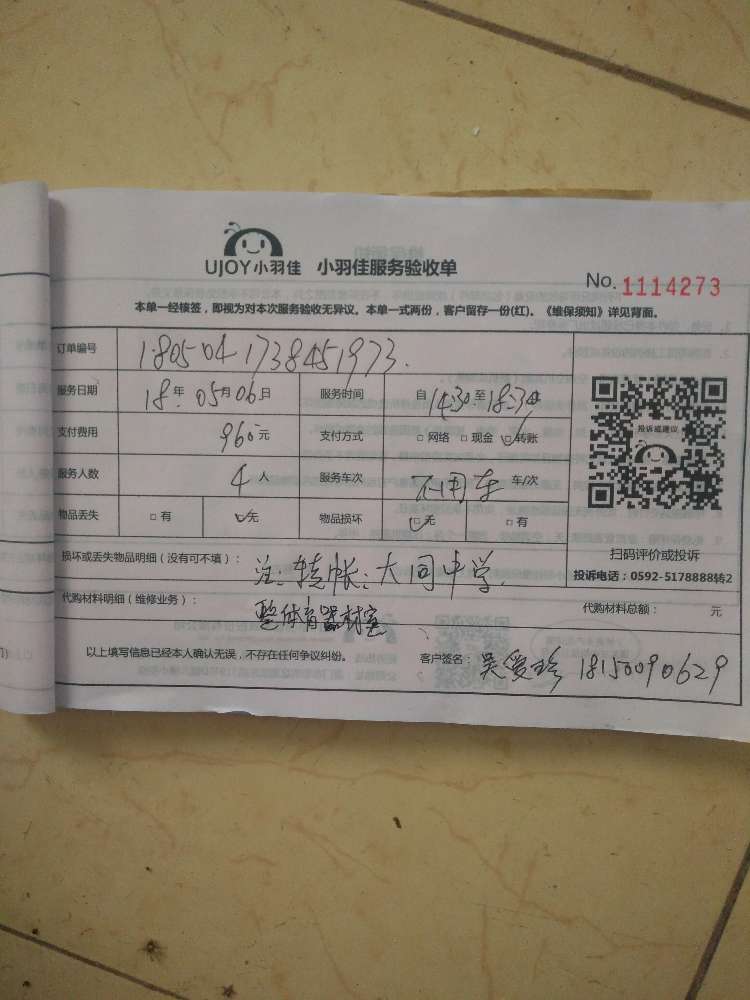 UJOY小羽佳 小羽佳服务验收单
No. 1114273
本单一经核签，即视为对本次服务验收无异议。本单一式两份，客户留存一份(红)。《维保须知》详见背面。
订单编号 1805041738451973.
服务日期 18年05月06日 服务时间 自14:30至18:30
支付费用 960元 支付方式 □网络 □现金 ☑转账
服务人数 4人 服务车次 不用车 车/次
物品丢失 □有 ☑无 物品损坏 ☑无 □有
投诉或建议
扫码评价或投诉
投诉电话：0592-5178888转2
损坏或丢失物品明细（没有可不填）： 注：转帐：大同中学.
代购材料明细（维修业务）： 整体育器材室 代购材料总额： 元
以上填写信息已经本人确认无误，不存在任何争议纠纷。 客户签名：吴爱珍 18150090629